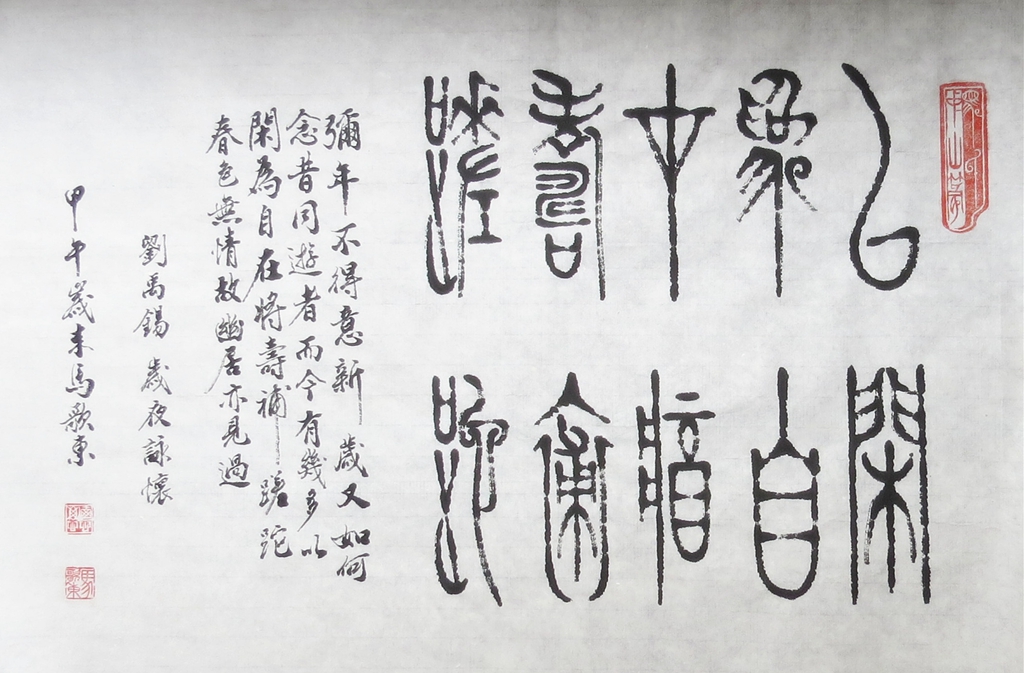 以閑
為自
在將
壽補
蹉跎
彌年不得意新歲又如何
念昔同遊者而今有幾多以
閑為自在將壽補蹉跎
春色無情故幽居亦見過
劉禹錫歲夜詠懷
甲午歲末馬歌東